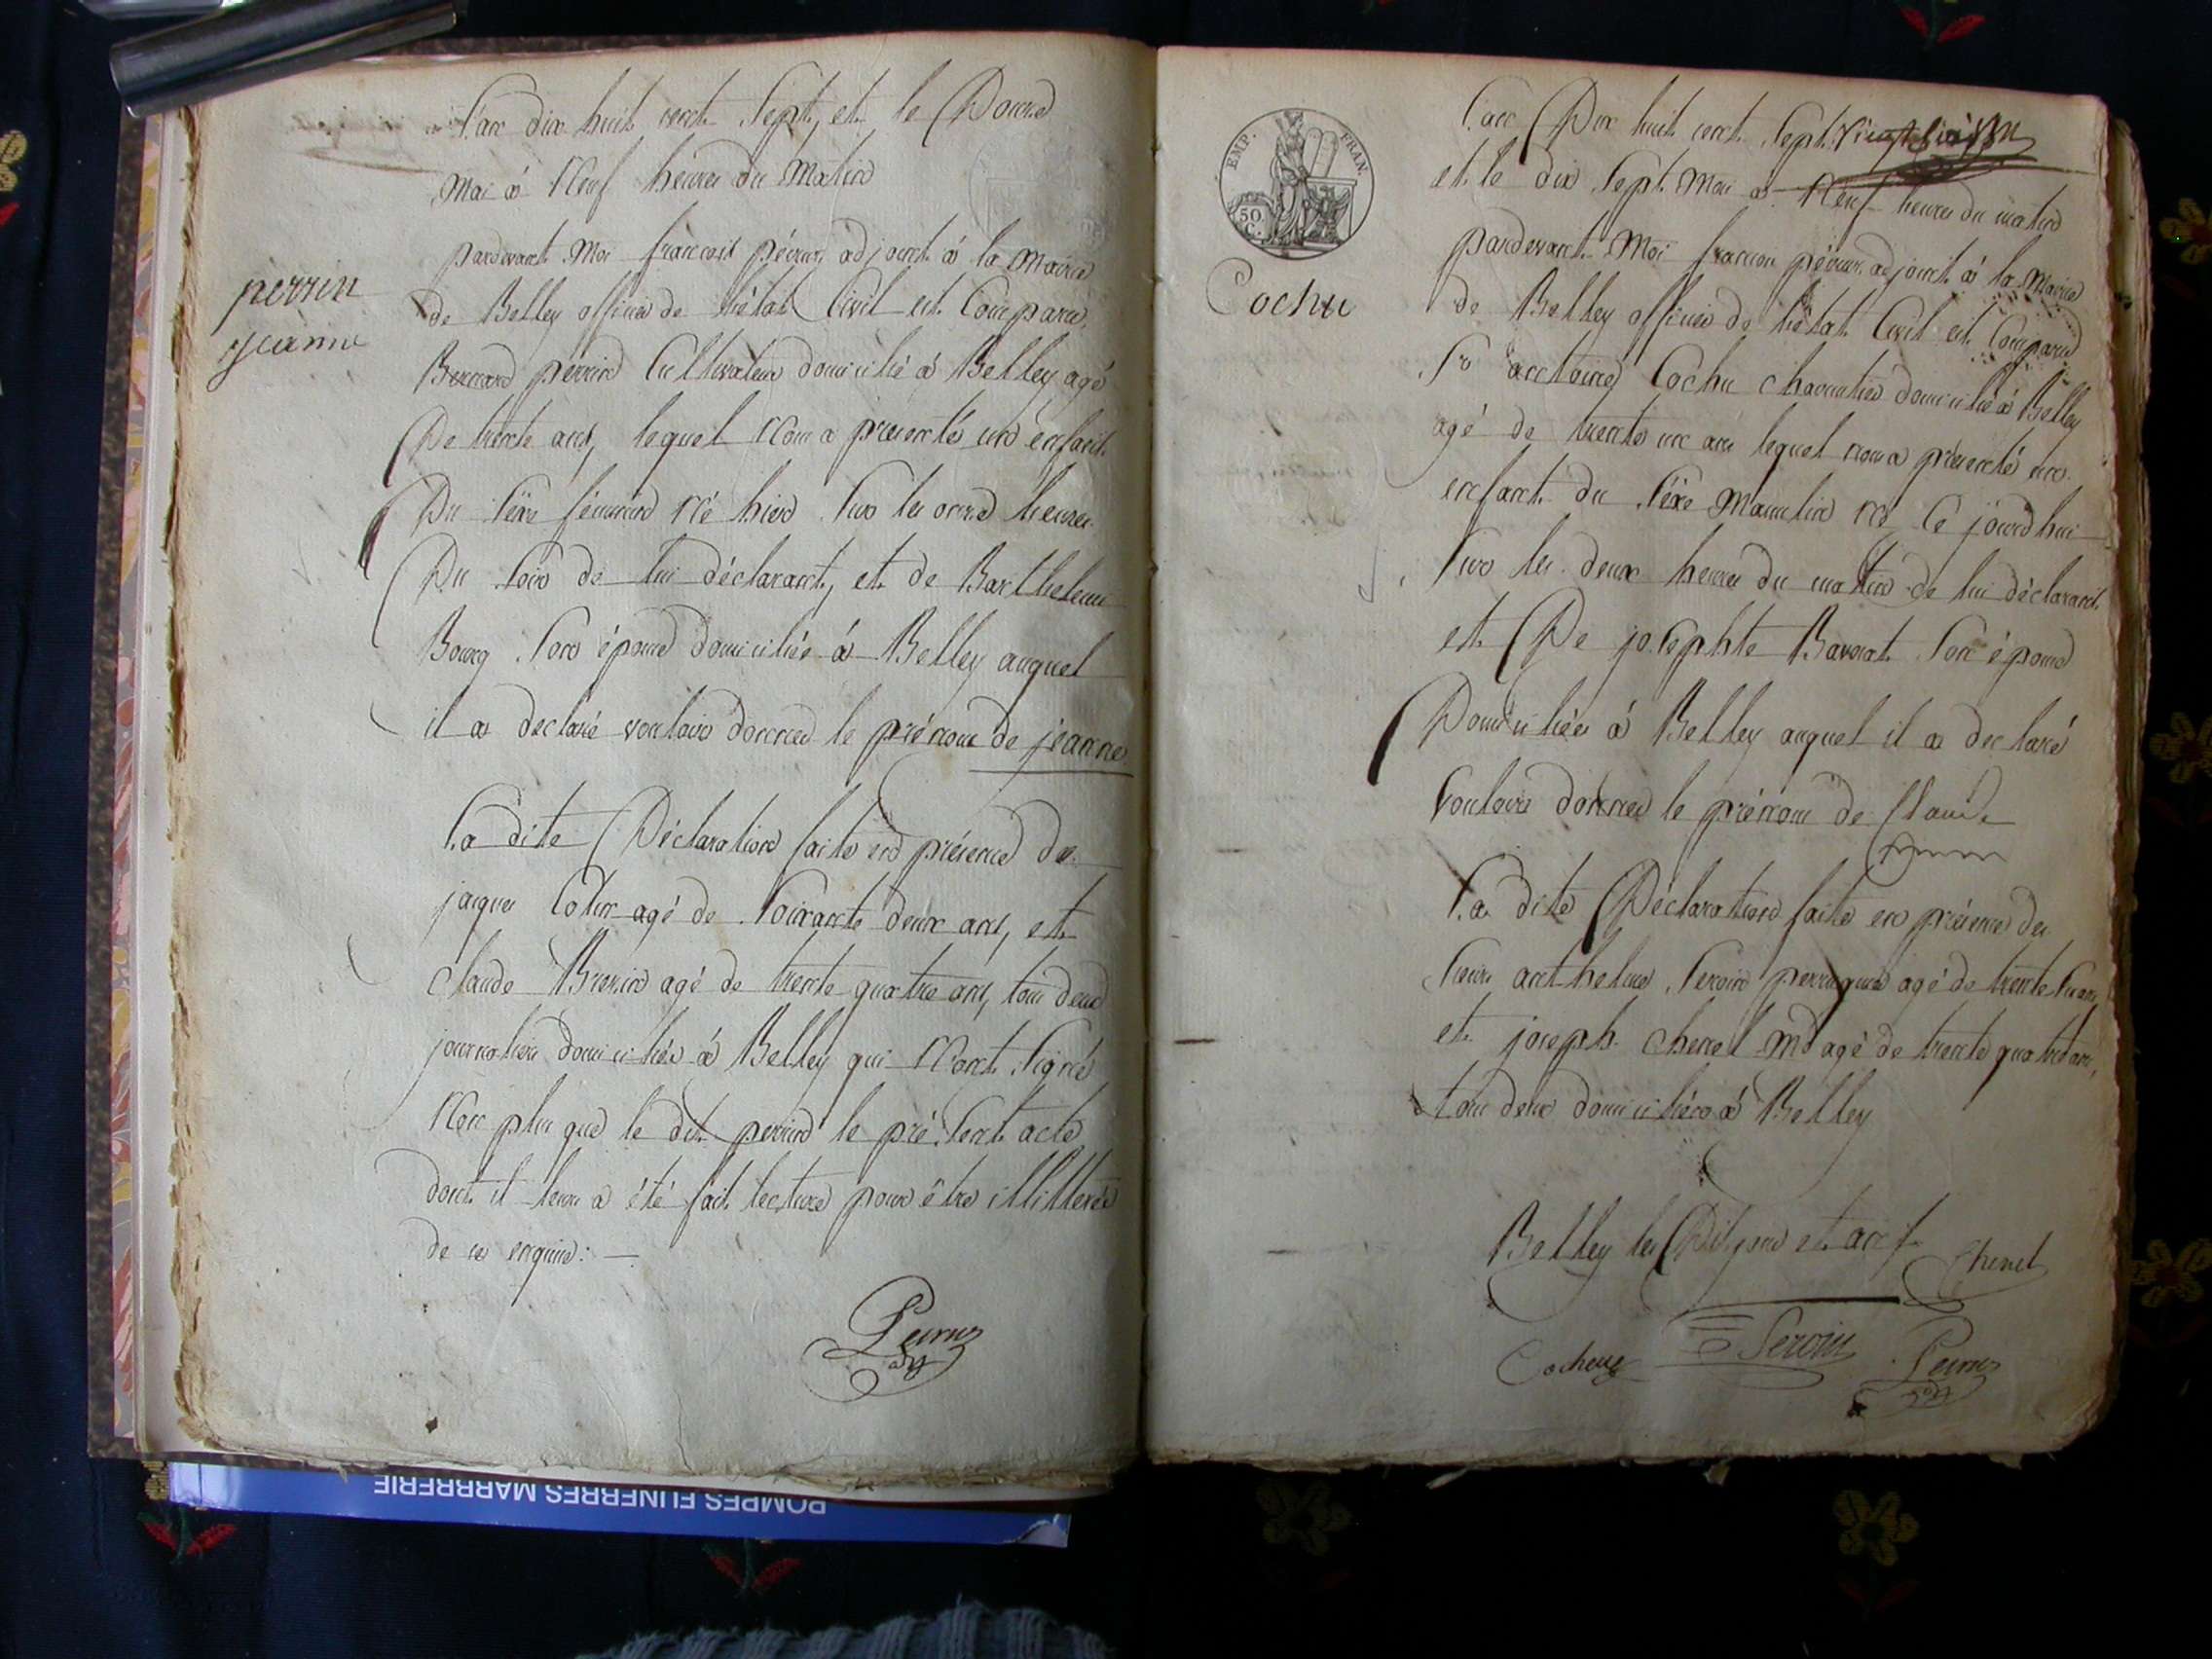 L'an dix huit cent Sept, et le Douze
Mai à Neuf heures du Matin
perrin
jeanne
pardevant Moi françois péruz adjoint à la Mairie
de Belley officier de l'état Civil est Comparu
Bernard perrin Cultivateur domicilié à Belley agé
De trente ans, lequel Nous a présenté un enfant
Du Sexe féminin Né hier Sur les onze heures
Du Soir de lui déclarant, et de Barthelemi
Bourg Son épouse domiciliée à Belley auquel
il a declaré vouloir donner le prénom de jeanne
La dite Déclaration faite en présence de
jacques agé de Soixante deux ans, et
claude agé de trente quatre ans, tous deux
journaliers domiciliés à Belley qui N'ont Signé
Non plus que le dit perrin le présent acte
dont il leurs a été fait lecture pour être illitterés
de ce enquis :
EMP. FRAN.
50 C.
Cochu
L'an Dix huit cent Sept
et le dix Sept Mai à Neuf heures du matin
pardevant Moi françois péruz adjoint à la Mairie
de Belley officier de l'état Civil est Comparu
Sr antoine Cochu domicilié à Belley
agé de trente un ans lequel nous a présenté un
enfant du Sexe Masculin Né Ce jourd'hui
Sur les deux heures du matin de lui déclarant
et De josephte Son épouse
Domiciliée à Belley auquel il a declaré
vouloir donner le prénom de Claude
La dite Déclaration faite en présence des
Sieurs anthelme Seroin perruquier agé de trente Six ans
et joseph chenel Md agé de trente quatre ans,
tous deux domiciliés à Belley
Belley les Dit jour et an
Chenel
Cocheux Seroin
POMPES FUNEBRES MARRRERIE